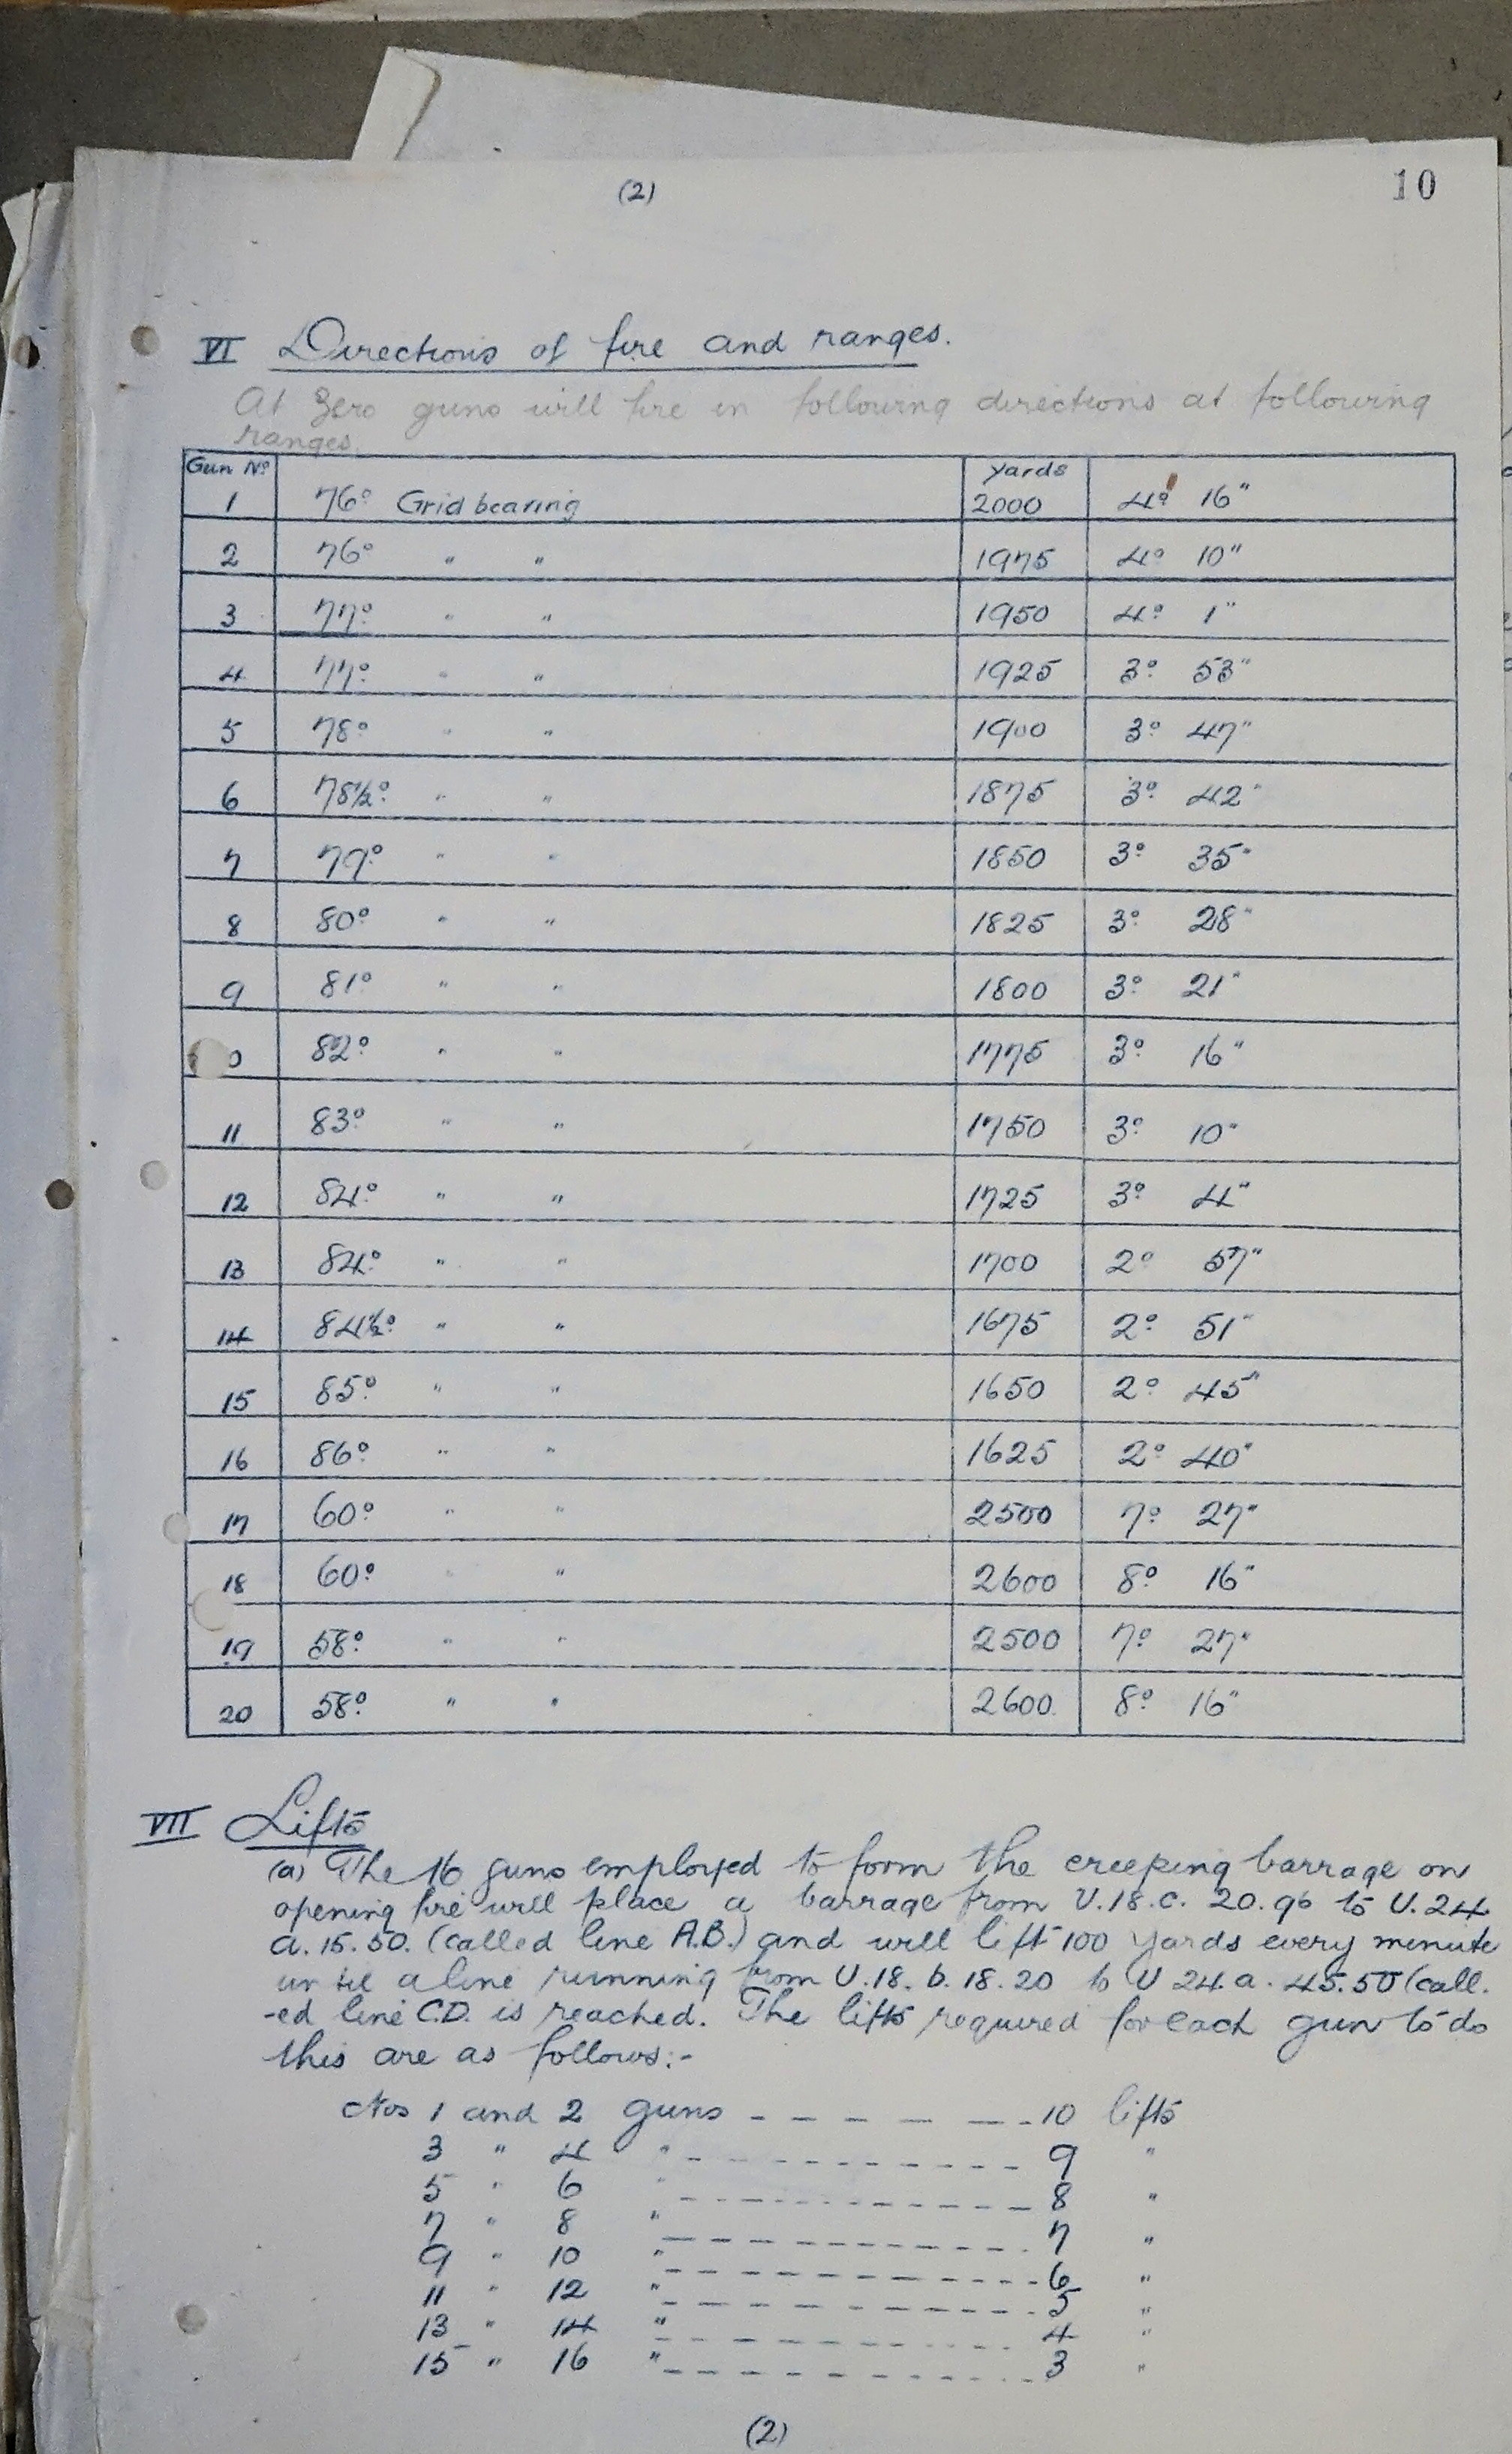 (2)
10
VI Directions of fire and ranges.
At Zero guns will fire in following directions at following
ranges.
Gun No Yards
1 76° Grid bearing 2000 4° 16"
2 76° " " 1975 4° 10"
3 77° " " 1950 4° 1"
4 77° " " 1925 3° 53"
5 78° " " 1900 3° 47"
6 78½° " " 1875 3° 42"
7 79° " " 1850 3° 35"
8 80° " " 1825 3° 28"
9 81° " " 1800 3° 21"
0 82° " " 1775 3° 16"
11 83° " " 1750 3° 10"
12 84° " " 1725 3° 4"
13 84° " " 1700 2° 57"
14 84½° " " 1675 2° 51"
15 85° " " 1650 2° 45"
16 86° " " 1625 2° 40"
17 60° " " 2500 7° 27"
18 60° " " 2600 8° 16"
19 58° " " 2500 7° 27"
20 58° " " 2600. 8° 16"
VII Lifts
(a) The 16 guns employed to form the creeping barrage on
opening fire will place a barrage from U.18.c. 20.96 to U.24
a. 15.50. (called line A.B.) and will lift 100 yards every minute
until a line running from U.18.b.18.20 to U 24.a. 45.50 (call.
-ed line C.D. is reached. The lifts required for each gun to do
this are as follows:-
Nos 1 and 2 guns - - - - - - 10 lifts
3 " 4 " - - - - - - - - - - 9 "
5 " 6 " - - - - - - - - - - 8 "
7 " 8 " - - - - - - - - - - 7 "
9 " 10 " - - - - - - - - - - 6 "
11 " 12 " - - - - - - - - - - 5 "
13 " 14 " - - - - - - - - - - 4 "
15 " 16 " - - - - - - - - - - 3 "
(2)